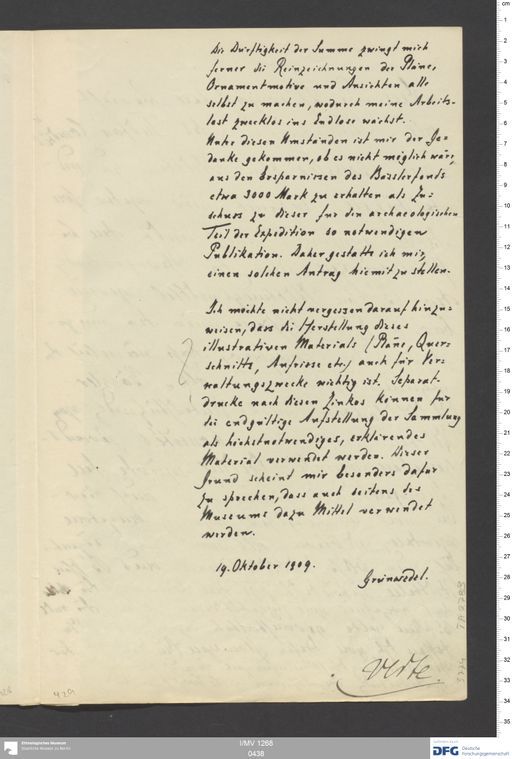 Die Dürftigkeit der Summe zwingt mich
ferner die Reinzeichnungen der Pläne,
Ornamentmotive und Ansichten alle
selbst zu machen, wodurch meine Arbeits-
last zwecklos ins Endlose wächst.
Unter diesen Umständen ist mir der Ge-
danke gekommen, ob es nicht möglich wäre,
aus den Ersparnissen des Bässlerfonds
etwa 3000 Mark zu erhalten als Zu-
schuss zu dieser für den archaeologischen
Teil der Expedition so notwendigen
Publikation. Daher gestatte ich mir,
einen solchen Antrag hiemit zu stellen.
Ich möchte nicht vergessen darauf hinzu=
weisen, dass die Herstellung dieses
illustrativen Materials (Pläne, Quer-
schnitte, Aufrisse etc.) auch für Ver=
waltungszwecke wichtig ist. Separat-
drucke nach diesen Zinkos können für
die endgültige Aufstellung der Sammlung
als höchstnotwendiges, erklärendes
Material verwendet werden. Dieser
Grund scheint mir besonders dafür
zu sprechen, dass auch seitens des
Museums dazu Mittel verwendet
werden.
19. Oktober 1909.
Grünwedel.
429
Ethnologisches Museum
Staatliche Museen zu Berlin
I/MV 1268
0438
DFG Deutsche
Forschungsgemeinschaft